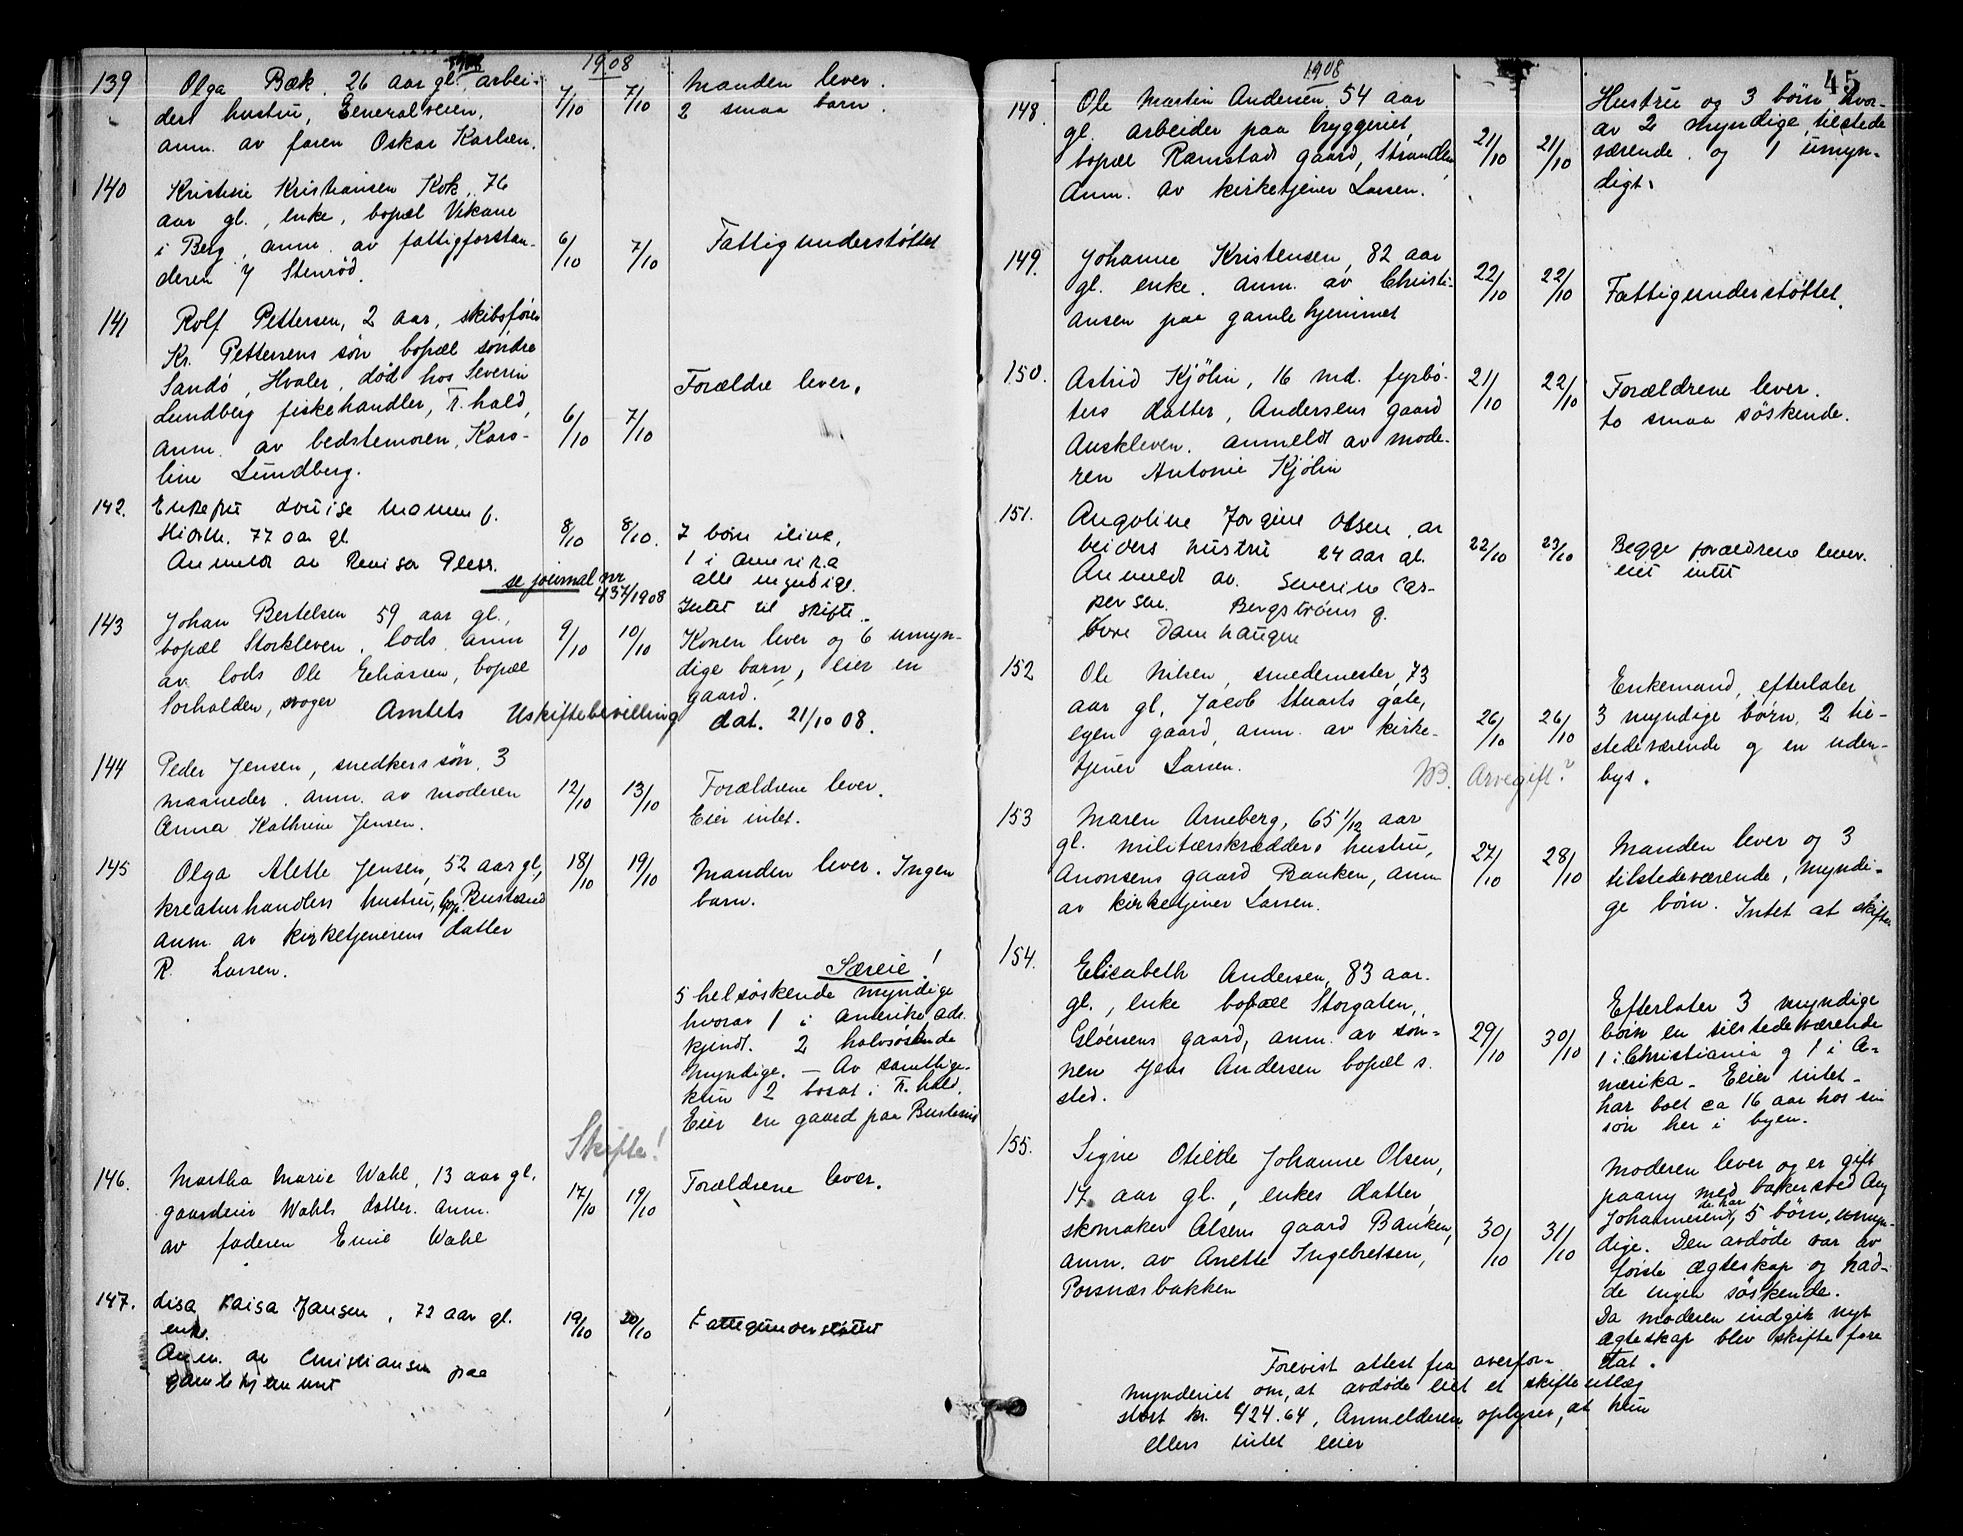 1908
139 Olga Bæk, 26 aar gl. arbei-
ders hustru, Generalveien,
anm. av faren Oskar Karlsen.
7/10 7/10
Manden lever.
2 smaa barn.
140 Kristine Kristiansen Kok, 76
aar gl., enke, bopæl Vekane
i Berg, anm. av fattigforstan-
deren Stenrød.
6/10 7/10
Fattigunderstøttet
141 Rolf Pettersen, 2 aar, skibsfører
Kr. Pettersens søn bopæl søndre
Sandø, Hvaler, død hos Severin
Lundberg fiskehandler, Fr.hald,
anm. av bedstemoren, Karo-
line Lundberg.
6/10 7/10
Forældre lever.
142. Enkefru Lovise Momen f.
77 aar gl.
Anmeldt av Revisor
8/10 8/10.
7 børn ilive,
1 i Amerika
alle myndige.
Intet til skifte.
se journal nr
437/1908
143 Johan Bertelsen 59 aar gl.,
bopæl Storkleven, lods anm
av lods Ole Eliassen, bopæl
Sorhalden, svoger
9/10 10/10
Konen lever og 6 umyn-
dige barn, eier en
gaard.
Amtets Uskiftebevilling dat. 21/10 08.
144 Peder Jensen, snedkers søn, 3
maaneder. anm. av moderen
Anna Kathrine Jensen.
12/10 13/10
Forældrene lever.
Eier intet.
145 Olga Alette Jensen, 52 aar gl.,
kreaturhandlers hustru, bop.
anm. av kirketjenerens datter
R. Larsen.
18/10 19/10
Manden lever. Ingen
barn.
Særeie!
5 helsøskende myndige
hvorav 1 i Amerika adr.
kjendt. 2 halvsøskende
myndige. — Av samtlige
kun 2 bosat i Fr.hald.
Eier en gaard paa
Skifte!
146. Martha Marie Wahl, 13 aar gl.
gaardeier Wahls datter. anm.
av faderen Emil Wahl
17/10 19/10
Forældrene lever.
147. Lisa Kaisa Jansen, 72 aar gl.
enke.
Anm. av Christiansen paa
gamlehjemmet
19/10 20/10
Fattigunderstøttet
45
1908
148. Ole Martin Andersen, 54 aar
gl. arbeider paa bryggeriet,
bopæl Ramstads gaard, Stranden,
Anm. av kirketjener Larsen.
21/10 21/10
Hustru og 3 børn hvor-
av 2 myndige, tilstede
værende. og 1 umyn-
digt.
149. Johanne Kristensen, 82 aar
gl. enke. anm. av Christi-
ansen paa gamlehjemmet
22/10 22/10
Fattigunderstøttet.
150. Astrid Kjølin, 16 md. fyrbø-
ters datter, Andersens gaard
Anskleven. anmeldt av mode-
ren Antonie Kjølin
21/10 22/10
Forældrene lever.
to smaa søskende.
151. Angoline Jorgine Olsen, ar
beiders hustru 24 aar gl.
Anmeldt av Severine Cas-
persen. Bergstrøms g.
øvre Damhaugen
22/10 23/10
Begge forældrene lever.
eiet intet
152 Ole Nilsen, smedemester, 73
aar gl, Jacob Stuarts gate,
egen gaard, anm. av kirke-
tjener Larsen.
26/10 26/10
Enkemand, efterlater
3 myndige børn, 2 til-
stedeværende og en uden-
bys.
NB. Arvegift?
153 Maren Arneberg, 65 1/12 aar
gl. militærskrædders hustru,
Aronsens gaard Banken, anm
av kirketjener Larsen.
27/10 28/10
Manden lever og 3
tilstedeværende, myndi-
ge børn. Intet at skifte
154. Elisabeth Andersen, 83 aar.
gl., enke bopæl Storgaten,
Gløersens gaard, anm. av søn-
nen Jens Andersen bopæl s.
sted.
29/10 30/10
Efterlater 3 myndige
børn en tilstedeværende
1 i Christiania og 1 i A-
merika. Eier intet.
har boet ca 16 aar hos sin
søn her i byen.
155. Signe Otilde Johanne Olsen,
17 aar gl., enkes datter,
skomaker Olsens gaard Banken,
anm. av Anette Ingebretsen,
Porsnæsbakken
30/10 31/10
Moderen lever og er gift
paany med bakersvend Aug
Johannesen, de har 5 børn, umyn-
dige. Den avdøde var av
første ægteskap og had-
de ingen søskende.
Da moderen indgik nyt
ægteskap blev skifte fore
tat.
Forevist attest fra overfor-
mynderiet om, at avdøde eiet et skifteutlæg
stort kr. 424.64, Anmelderen oplyser, at hun
ellers intet eier